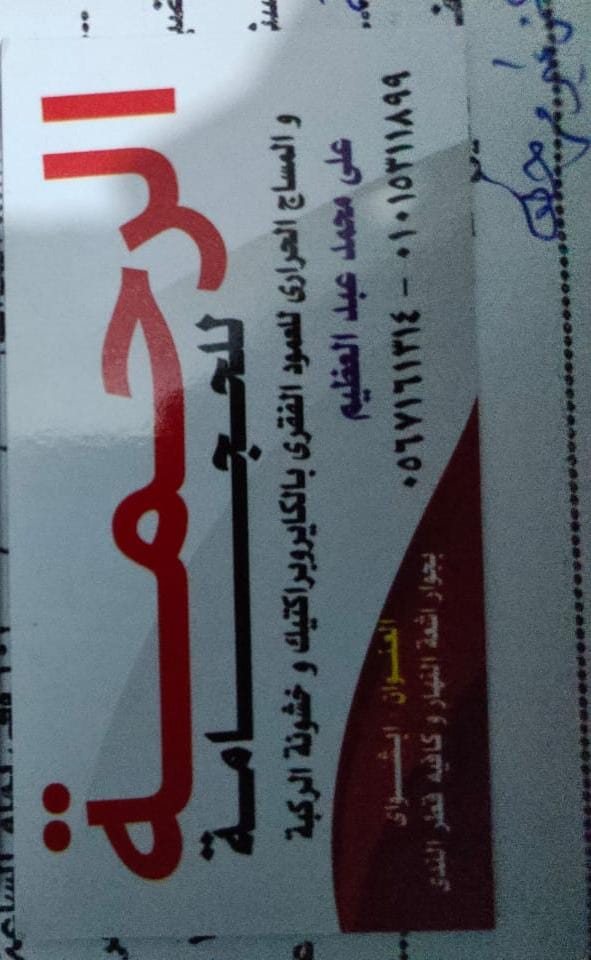 الرحمة
للحجامة
و المساج الحرارى للعمود الفقرى بالكايروبراكتيك و خشونة الركبة
على محمد عبد العظيم
٠١٠١٥٣١١٨٩٩ - ٠٥٦٧١٦١٣١٤
العنوان ابشواى
بجوار اشعة النهار و كافيه قطر الندى